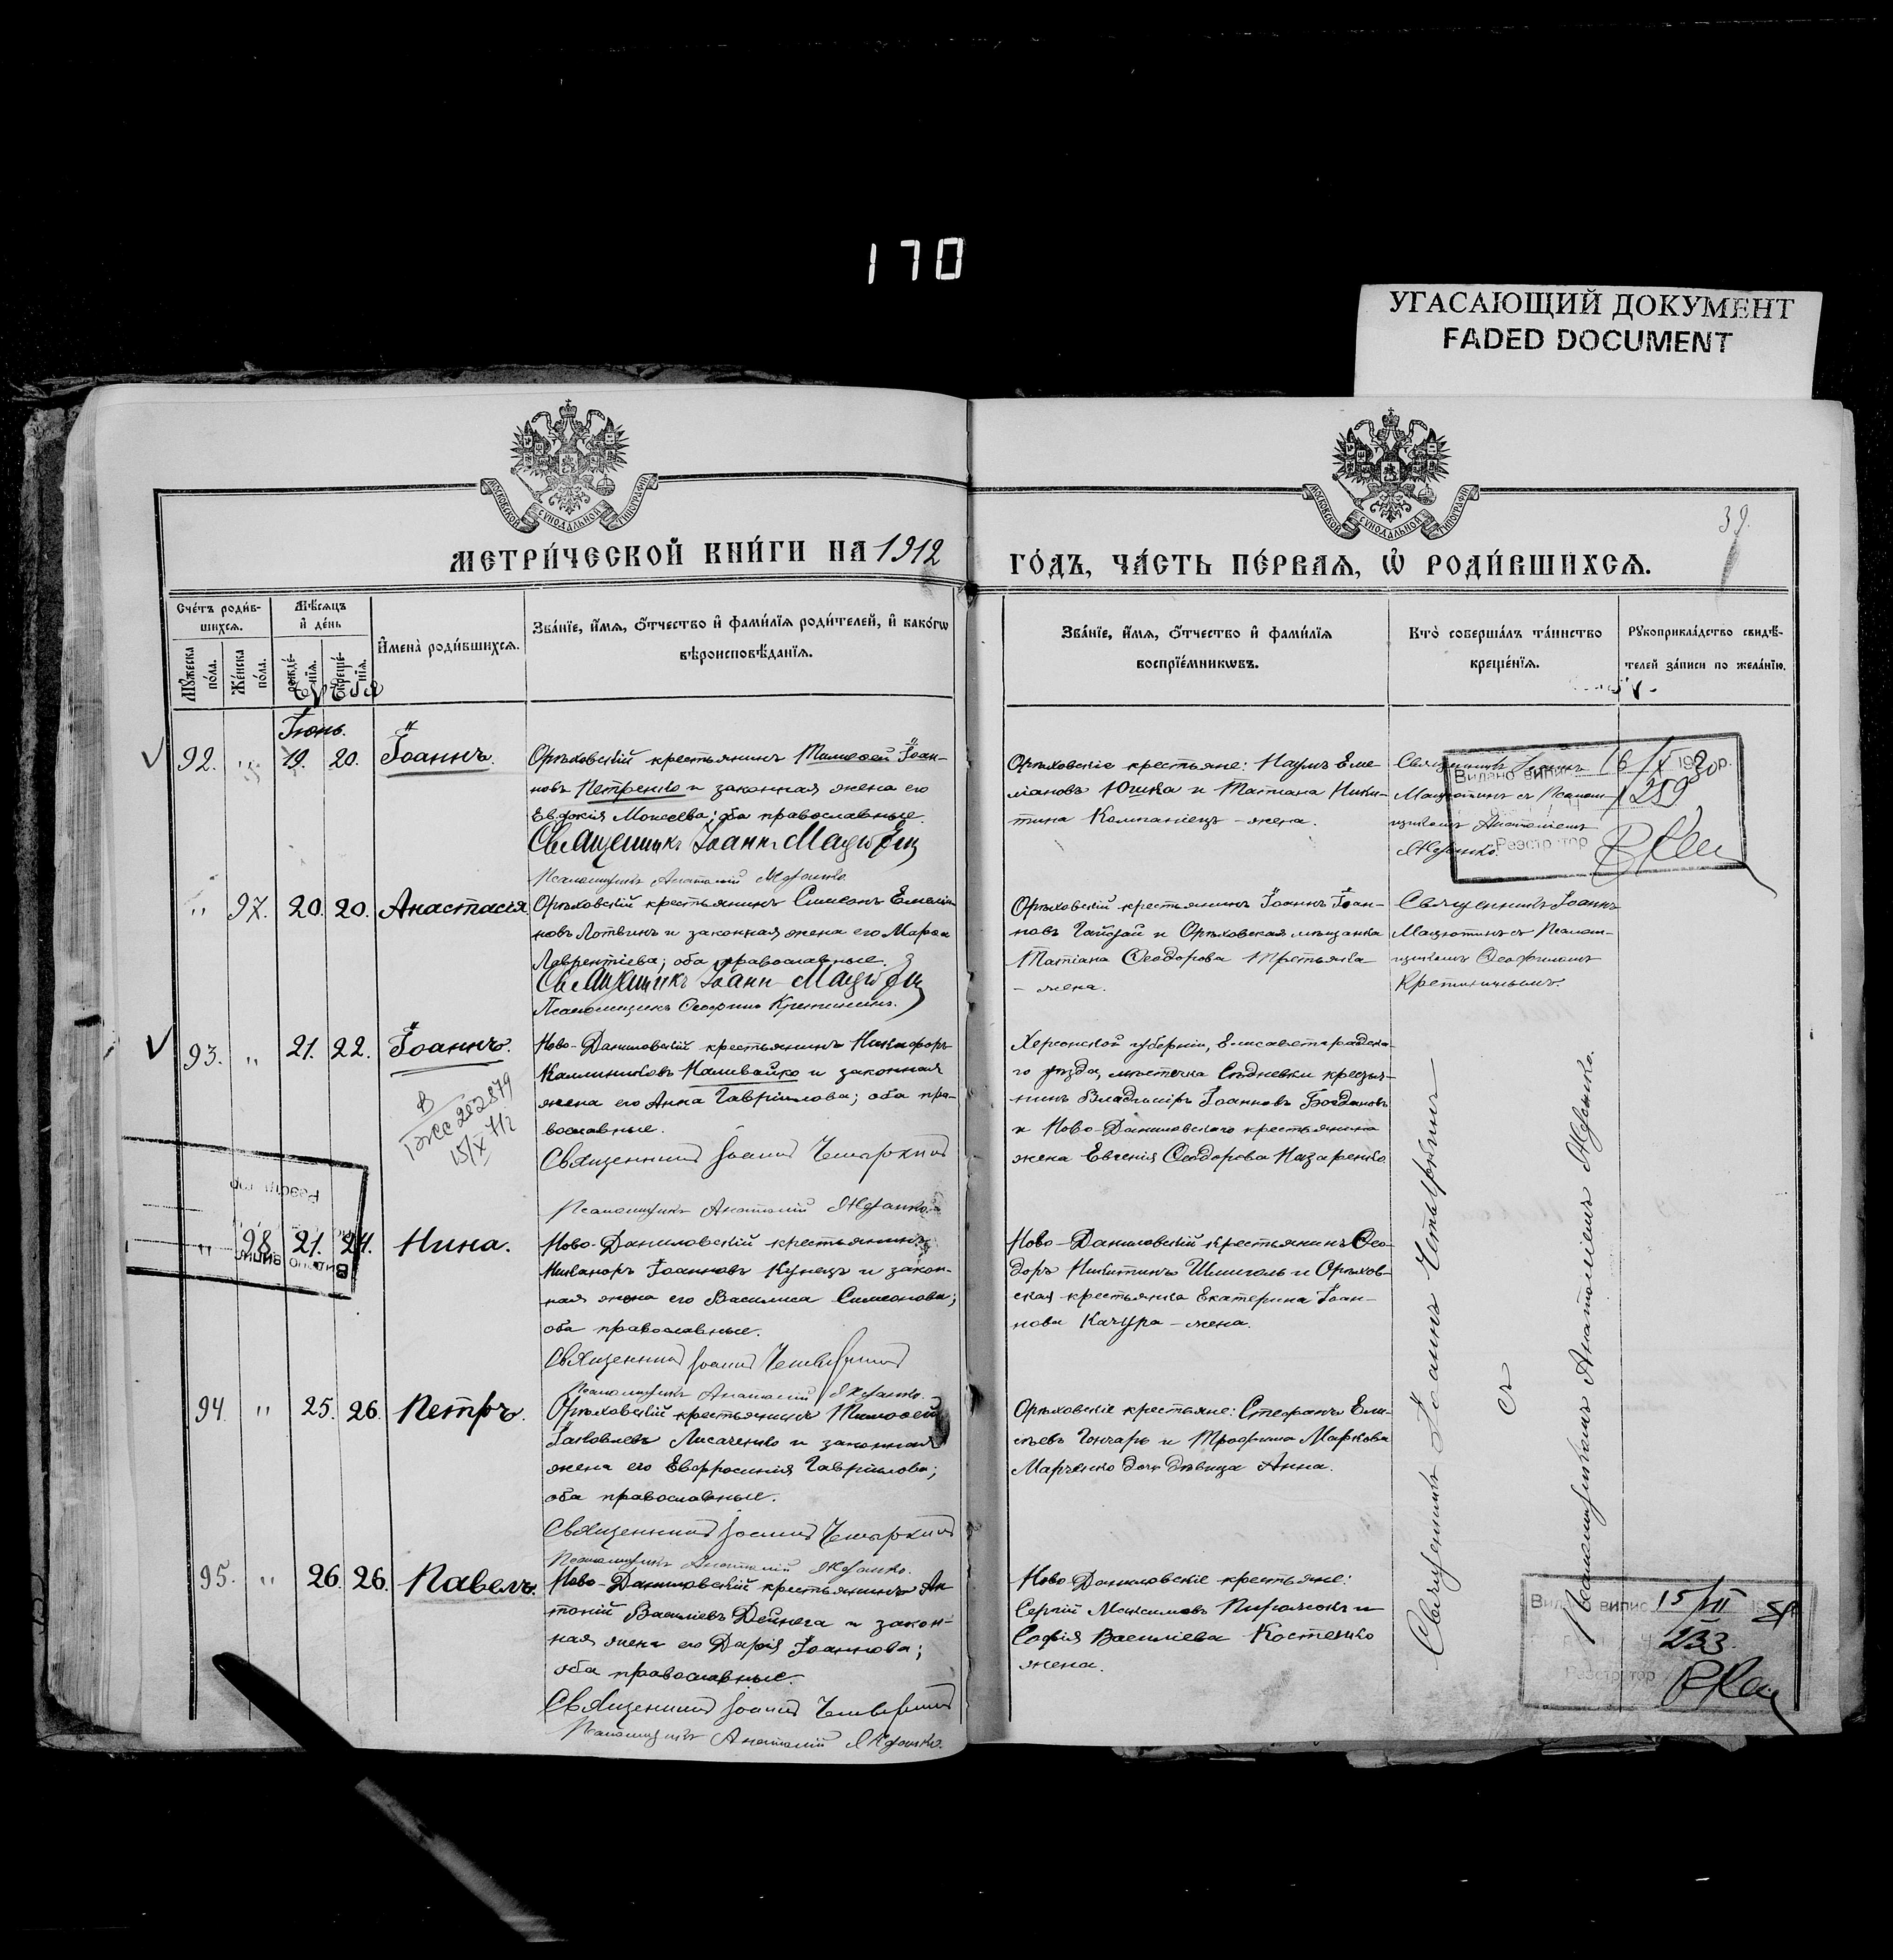 170
УГАСАЮЩИЙ ДОКУМЕНТ
FADED DOCUMENT
МОСКОВСКОЙ СУНОДАЛЬНОЙ ТИПОГРАФІИ
МОСКОВСКОЙ СУНОДАЛЬНОЙ ТИПОГРАФІИ
39.
МЕТРИ́ЧЕСКОЙ КНИ́ГИ НА 1912
ГО́ДЪ, ЧА́СТЬ ПЕ́РВАѦ, Ѡ҆ РОДИ́ВШИХСѦ.
Сче́тъ роди́вшихсѧ.
Мѹ́жеска по́ла.
Же́нска по́ла.
Мѣ́сѧцъ и҆ де́нь
рожде́нїѧ.
креще́нїѧ.
И҆мена̀ роди́вшихсѧ.
Зва́нїе, и҆́мѧ, ѻ҆́тчество и҆ фами́лїѧ роди́телей, и҆ како́гѡ
вѣроисповѣ́данїѧ.
Зва́нїе, и҆́мѧ, ѻ҆́тчество и҆ фами́лїѧ
воспрїе́мникѡвъ.
Кто̀ соверша́лъ та́инство
креще́нїѧ.
Рѹкоприкла́дство свидѣ́-
телей за́писи по жела́нїю.
Іюнь.
92. " 19. 20. Іоаннъ.
Орѣховскій крестьянинъ Тимоѳей Іоан-
новъ Петренко и законная жена его
Евдокія Моисеева; оба православные.
Священникъ Іоаннъ
Псаломщикъ Анатолій
Орѣховскіе крестьяне: Наумъ Еме
ліановъ Юшка и Татіана Ники-
тина Компаніецъ - жена.
Священникъ Іоаннъ
съ Псалом-
щикомъ Анатоліемъ
Видано випис 16/X 1930р.
259
Реэстратор
" 97. 20. 20. Анастасія
Орѣховскій крестьянинъ Симеонъ Емелія
новъ Лотвинъ и законная жена его Марѳа
Лаврентіева; оба православные.
Священникъ Іоаннъ
Псаломщикъ Ѳеофилъ
Орѣховскій крестьянинъ Іоаннъ Іоан-
новъ и Орѣховская мѣщанка
Татіана Ѳеодорова Третьяка
- жена.
Священникъ Іоаннъ
съ Псалом-
щикомъ Ѳеофиломъ
93. " 21. 22. Іоаннъ.
Ново-Даниловскій крестьянинъ Никифоръ
Калинниковъ Наливайко и законная
жена его Анна Гавріилова; оба пра-
вославные.
Священникъ Іоаннъ Четыркинъ
Псаломщикъ Анатолій
Херсонской губерніи, Елисаветградска-
го уѣзда, мѣстечка крестья-
нинъ Владиміръ Іоанновъ Богдановъ
и Ново-Даниловскаго крестьянина
жена Евгенія Ѳеодорова Назаренко
15/X
" 98. 21. 24. Нина.
Ново-Даниловскій крестьянинъ
Никаноръ Іоанновъ Кунецъ и закон-
ная жена его Василиса Симеонова;
оба православные.
Священникъ Іоаннъ Четыркинъ
Псаломщикъ Анатолій
Ново-Даниловскій крестьянинъ Ѳео-
доръ Никитинъ Шмиголь и Орѣхов-
ская крестьянка Екатерина Іоан-
нова Качура - жена.
94. " 25. 26. Петръ.
Орѣховскій крестьянинъ Тимоѳей
Іаковлевъ Лисаченко и законная
жена его Евфросинія Гавріилова;
оба православные.
Священникъ Іоаннъ Четыркинъ
Псаломщикъ Анатолій
Орѣховскіе крестьяне: Стефанъ Ели-
сѣевъ Гончаръ и Трофима Маркова
Марченко дочь дѣвица Анна.
95. " 26. 26. Павелъ.
Ново-Даниловскій крестьянинъ Ан
тоній Василіевъ Дейнега и закон-
ная жена его Дарія Іоаннова;
оба православные.
Священникъ Іоаннъ Четыркинъ
Псаломщикъ Анатолій
Ново-Даниловскіе крестьяне:
Сергій Максимовъ Пирожокъ и
Софія Василіева Костенко
жена.
Священникъ Іоаннъ Четыркинъ
съ
Псаломщикомъ Анатоліемъ
випис 15/VII
233.
Реэстратор